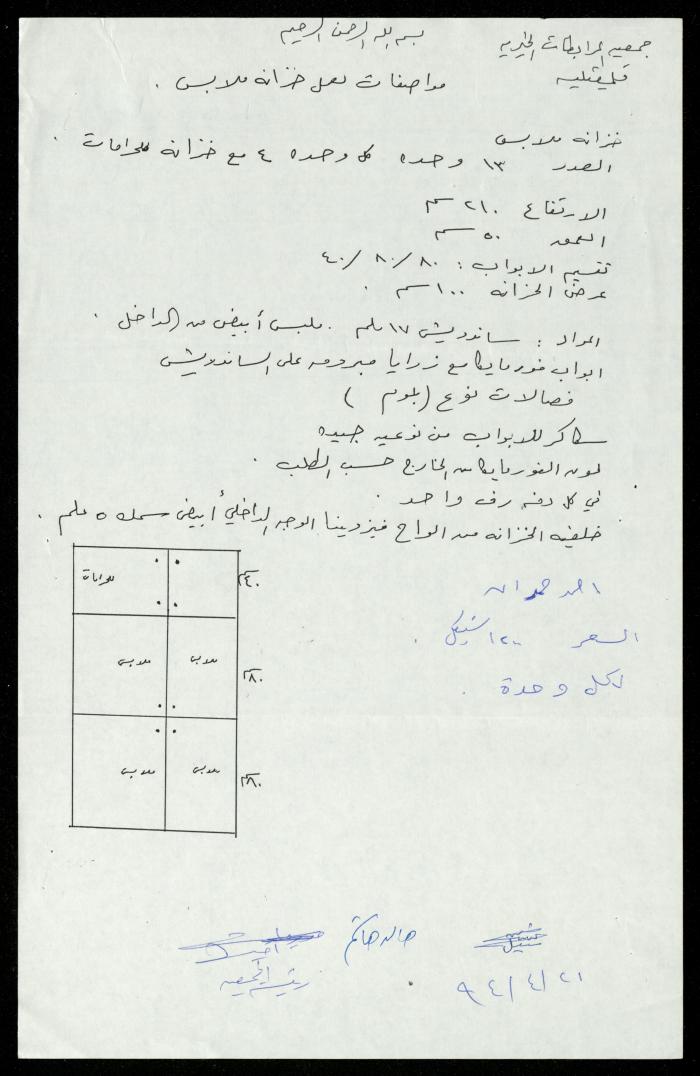 بسم الله الرحمن الرحيم
جمعيه المرابطات الخيريه
قلقيليه
مواصفات لعمل خزانة ملابس .
خزانه ملابس
العدد ١٣ وحده كل وحده ٤ مع خزانة للحرامات .
الارتفاع ٢١٠ سم
العمق ٥٠ سم
تقسيم الابواب : ٨٠ / ٨٠ / ٤٠
عرض الخزانه ١٠٠ سم .
المواد : ساندويش ١٧ ملم . ملبس أبيض من الداخل .
ابواب فورمايكا مع زوايا مبرومه على الساندويش
فصالات نوع ( بلوم )
سكاكر للابواب من نوعيه جيده
لون الفورمايكا من الخارج حسب الطلب .
في كل دفه رف واحد .
خلفية الخزانه من الواح فيزدينا الوجه الداخلي أبيض سمك ٥ ملم .
حرامات
٤٠ سم
ملابس
ملابس
٨٠ سم
ملابس
ملابس
٨٠ سم
احمد حمدان
السعر ١٢٠٠ شيكل
لكل وحدة .
خالد حاتم
رئيسة الجمعيه
٩٤/٤/٢١